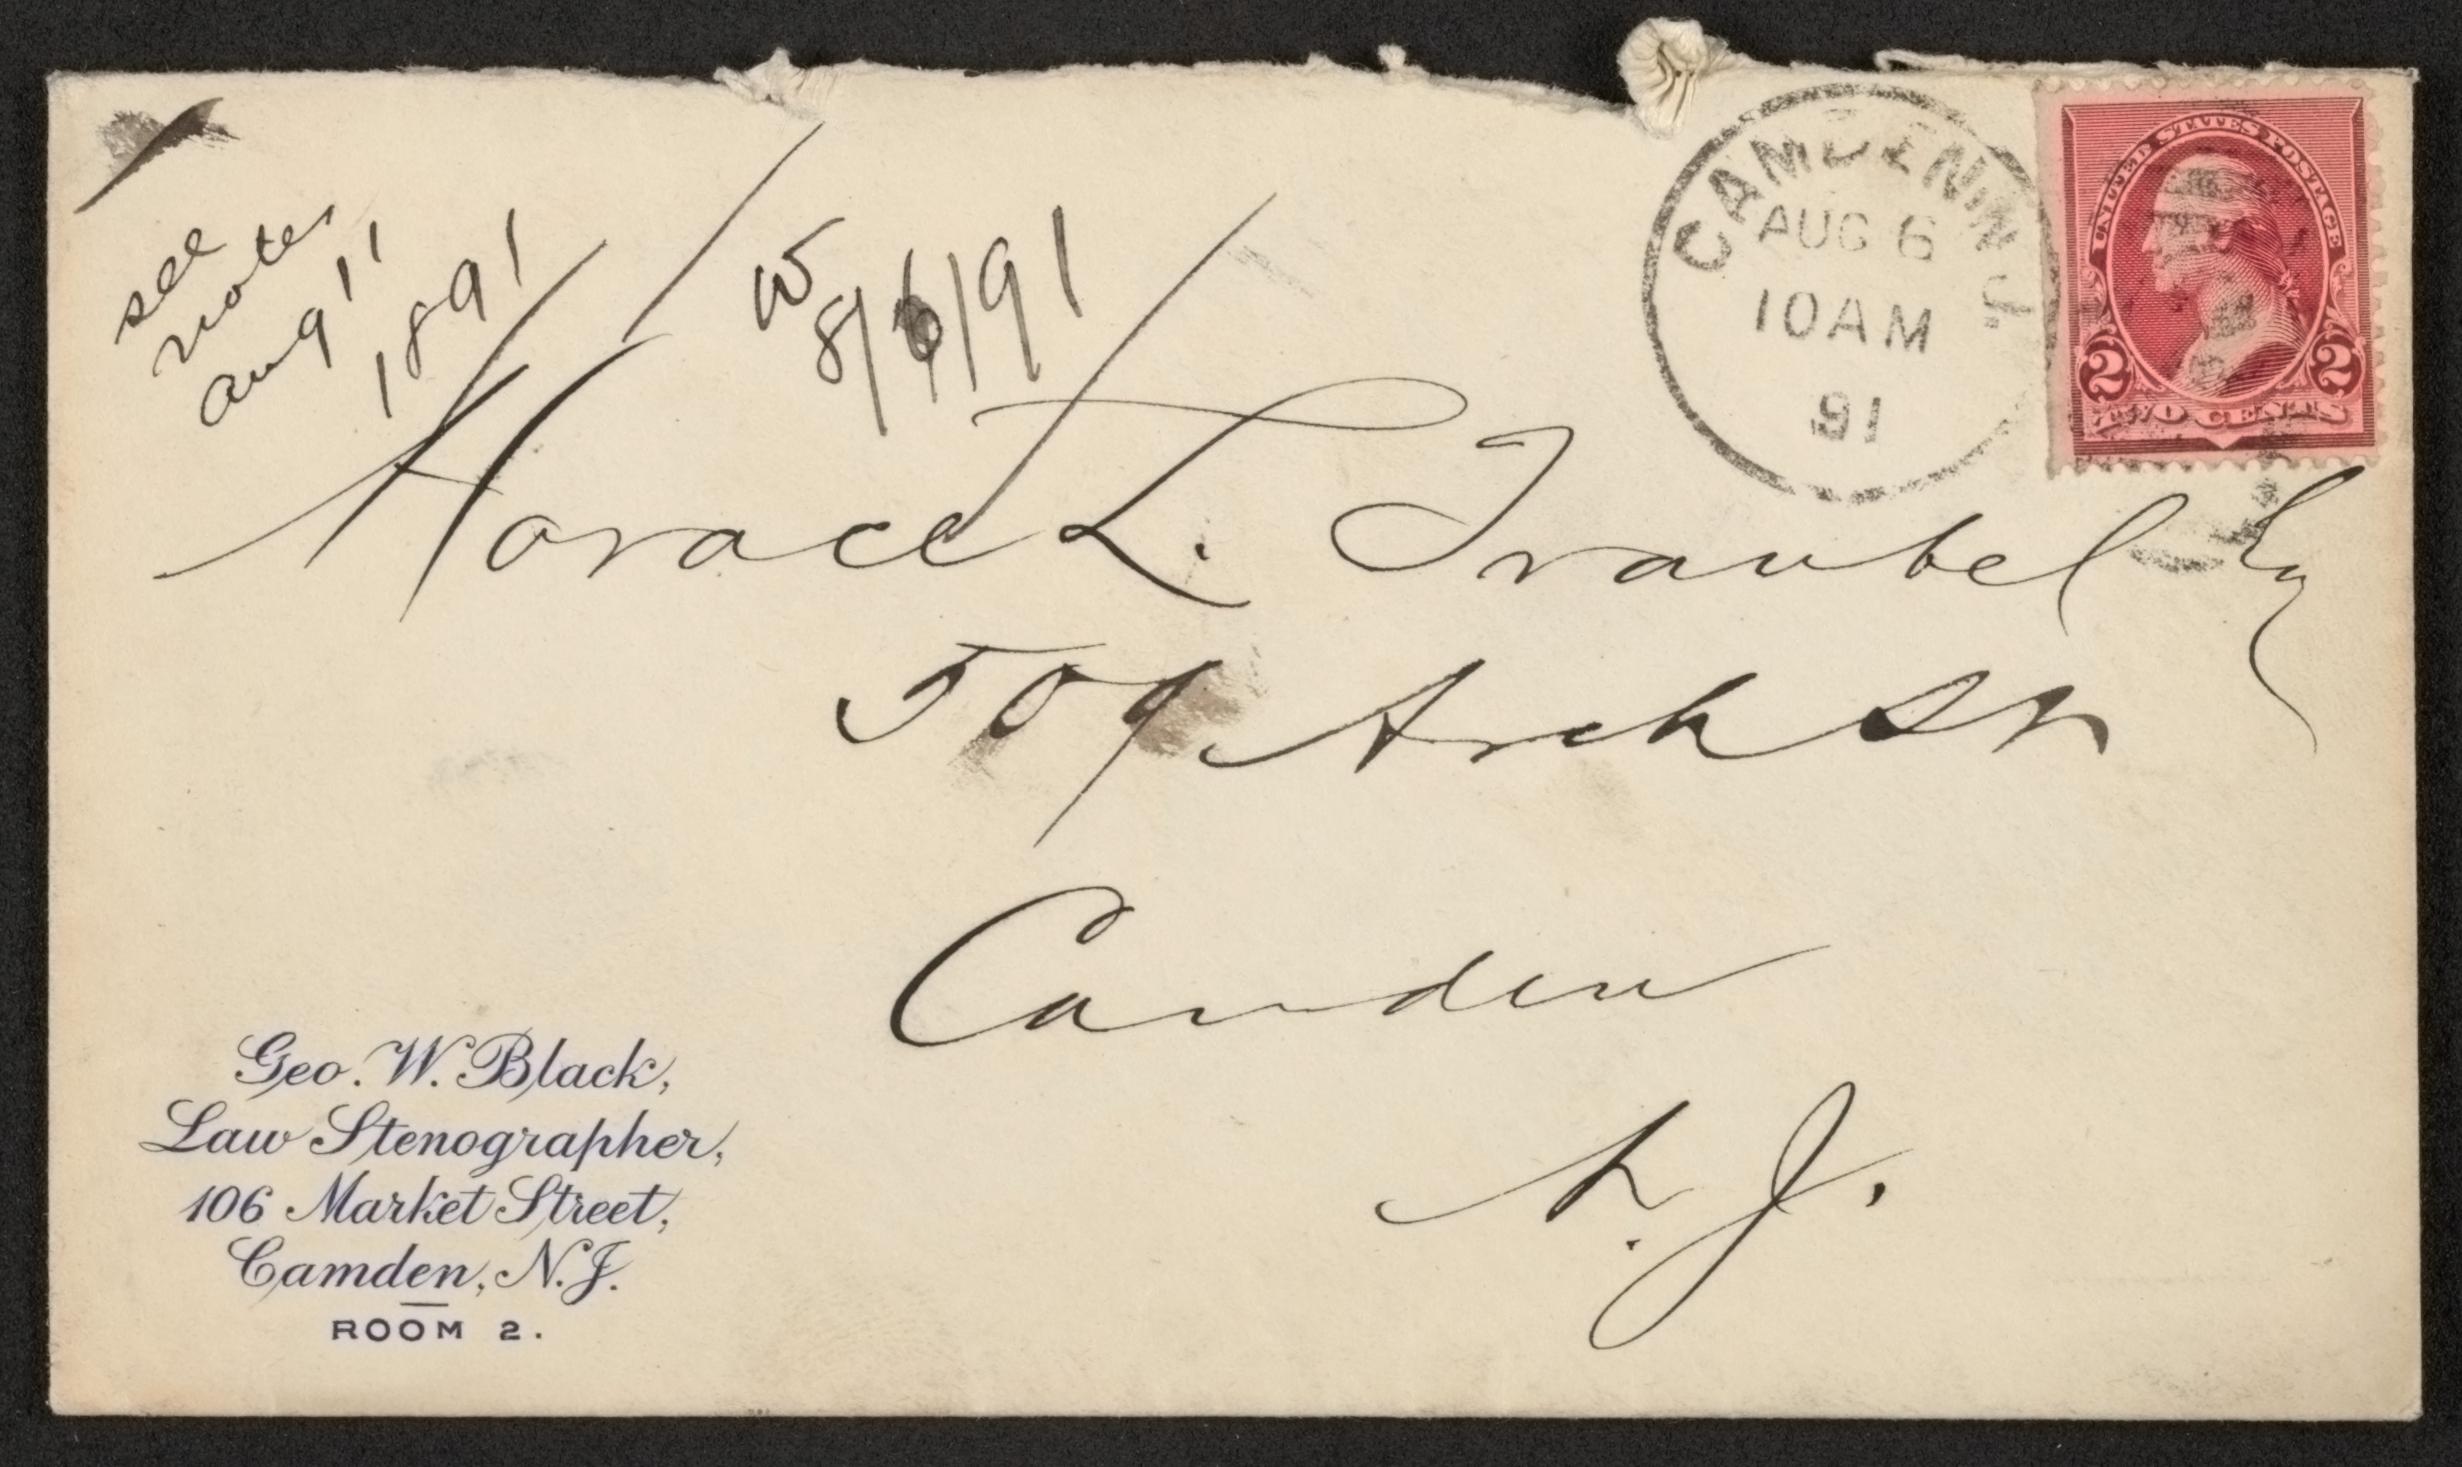 see
notes
aug 11
1891
W
8/6/91
CAMDEN N.J.
AUG 6
10AM
91
UNITED STATES POSTAGE
2 2
TWO CENTS
Horace L. Traubel Esq
509 Arch St
Camden
N.J.
Geo. W. Black,
Law Stenographer,
106 Market Street,
Camden, N.J.
ROOM 2.